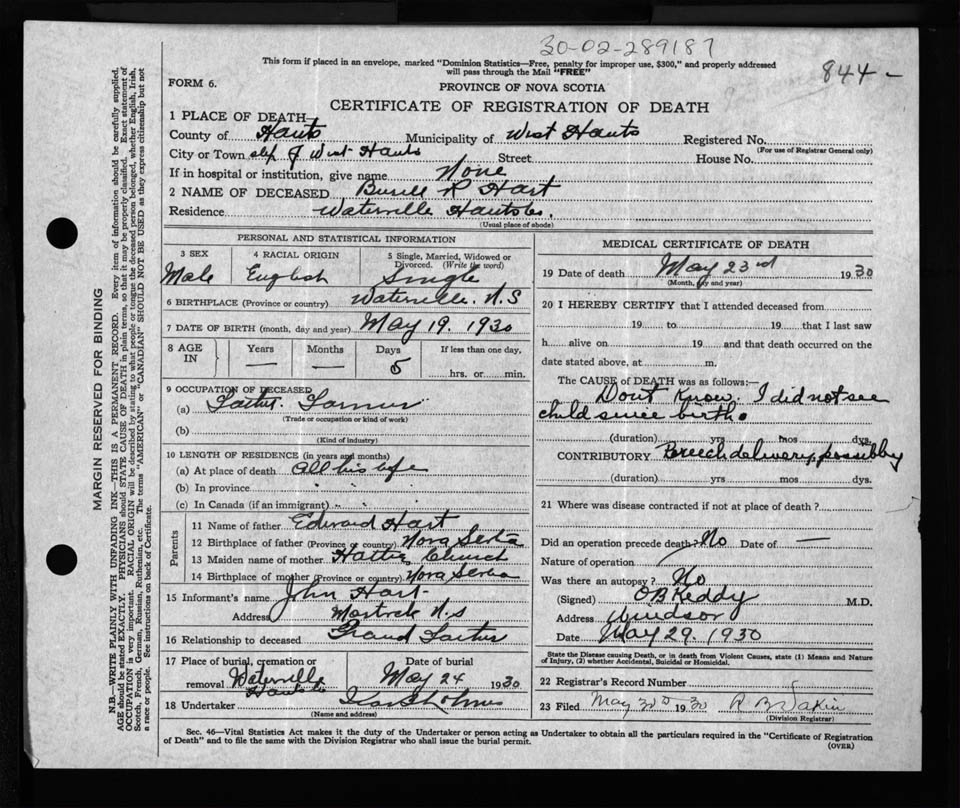 30-02-289187
This form if placed in an envelope, marked "Dominion Statistics—Free, penalty for improper use, $300," and properly addressed
will pass through the Mail "FREE"
844-
FORM 6.
PROVINCE OF NOVA SCOTIA
CERTIFICATE OF REGISTRATION OF DEATH
1 PLACE OF DEATH—
County of Hants Municipality of West Hants Registered No.
(For use of Registrar General only)
City or Town of West Hants Street House No.
If in hospital or institution, give name None
2 NAME OF DECEASED R Hart
Residence Waterville Hants Co.
(Usual place of abode)
PERSONAL AND STATISTICAL INFORMATION
3 SEX 4 RACIAL ORIGIN 5 Single, Married, Widowed or
Divorced. (Write the word)
Male English Single
6 BIRTHPLACE (Province or country) Waterville. N.S
7 DATE OF BIRTH (month, day and year) May 19. 1930
8 AGE IN Years Months Days If less than one day,
— — 5 hrs. or min.
9 OCCUPATION OF DECEASED
(a) Farmer
(Trade or occupation or kind of work)
(b)
(Kind of industry)
10 LENGTH OF RESIDENCE (in years and months)
(a) At place of death all his life
(b) In province
(c) In Canada (if an immigrant)
Parents
11 Name of father Edward Hart
12 Birthplace of father (Province or country) Nova Scotia
13 Maiden name of mother Hattie Church
14 Birthplace of mother (Province or country) Nova Scotia
15 Informant's name John Hart
Address N.S
16 Relationship to deceased Grand Father
17 Place of burial, cremation or Date of burial
removal Waterville May 24 1930
Hants Co
18 Undertaker
(Name and address)
MEDICAL CERTIFICATE OF DEATH
19 Date of death May 23rd 1930
(Month, day and year)
20 I HEREBY CERTIFY that I attended deceased from
19 to 19 that I last saw
h alive on 19 and that death occurred on the
date stated above, at m.
The CAUSE of DEATH was as follows:—
Don't Know. I did not see
child since birth.
(duration) yrs mos dys.
CONTRIBUTORY Breech delivery, possibly
(duration) yrs. mos. dys.
21 Where was disease contracted if not at place of death?
Did an operation precede death? No Date of —
Nature of operation
Was there an autopsy? No
(Signed) O B Keddy M.D.
Address Windsor
Date May 29. 1930
State the Disease causing Death, or in death from Violent Causes, state (1) Means and Nature
of Injury, (2) whether Accidental, Suicidal or Homicidal.
22 Registrar's Record Number
23 Filed May 30 1930
(Division Registrar)
Sec. 46—Vital Statistics Act makes it the duty of the Undertaker or person acting as Undertaker to obtain all the particulars required in the "Certificate of Registration
of Death" and to file the same with the Division Registrar who shall issue the burial permit.
(OVER)
MARGIN RESERVED FOR BINDING
N.B.—WRITE PLAINLY WITH UNFADING INK—THIS IS A PERMANENT RECORD. Every item of information should be carefully supplied.
AGE should be stated EXACTLY. PHYSICIANS should STATE CAUSE OF DEATH in plain terms, so that it may be properly classified. Exact statement of
OCCUPATION is very important. RACIAL ORIGIN will be described by stating to what people or tongue the deceased person belonged, whether English, Irish,
Scotch, French, German, Russian, Ruthenian, etc. The terms "AMERICAN" or "CANADIAN" SHOULD NOT BE USED as they express citizenship but not
a race or people. See instructions on back of Certificate.